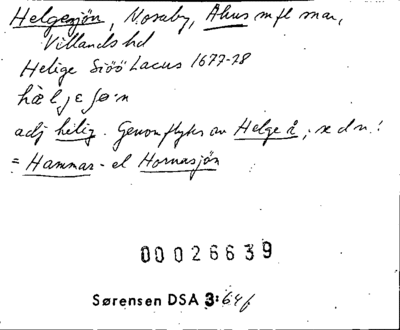 Helgesjön, Nosaby, Åhus m fl snar,
Villands hd
Helige Siöö Lacus 1677-78
hæljeʃø·n
adj helig. Genomflytes av Helge å, se d n!
= Hammar- el Hornasjön
0002663 9
Sørensen DSA 3:64f